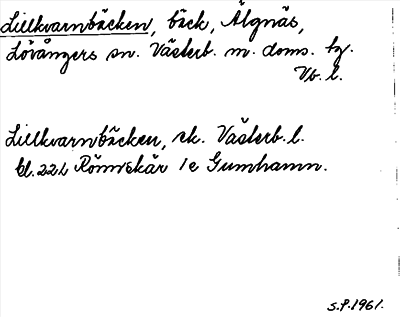 Lillkvarnbäcken, bäck, Älgnäs,
Lövångers sn. Västerb. m. doms. tg.
Vb. l.
Lillkvarnbäcken, ek. Västerb. l.
bl. 22L Rönnskär 1e Gumhamn.
S.P. 1961.